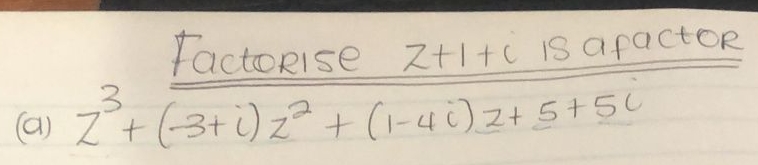 Factorise z+1+i is a factor
(a) z³+(-3+i)z²+(1-4i)z+5+5i